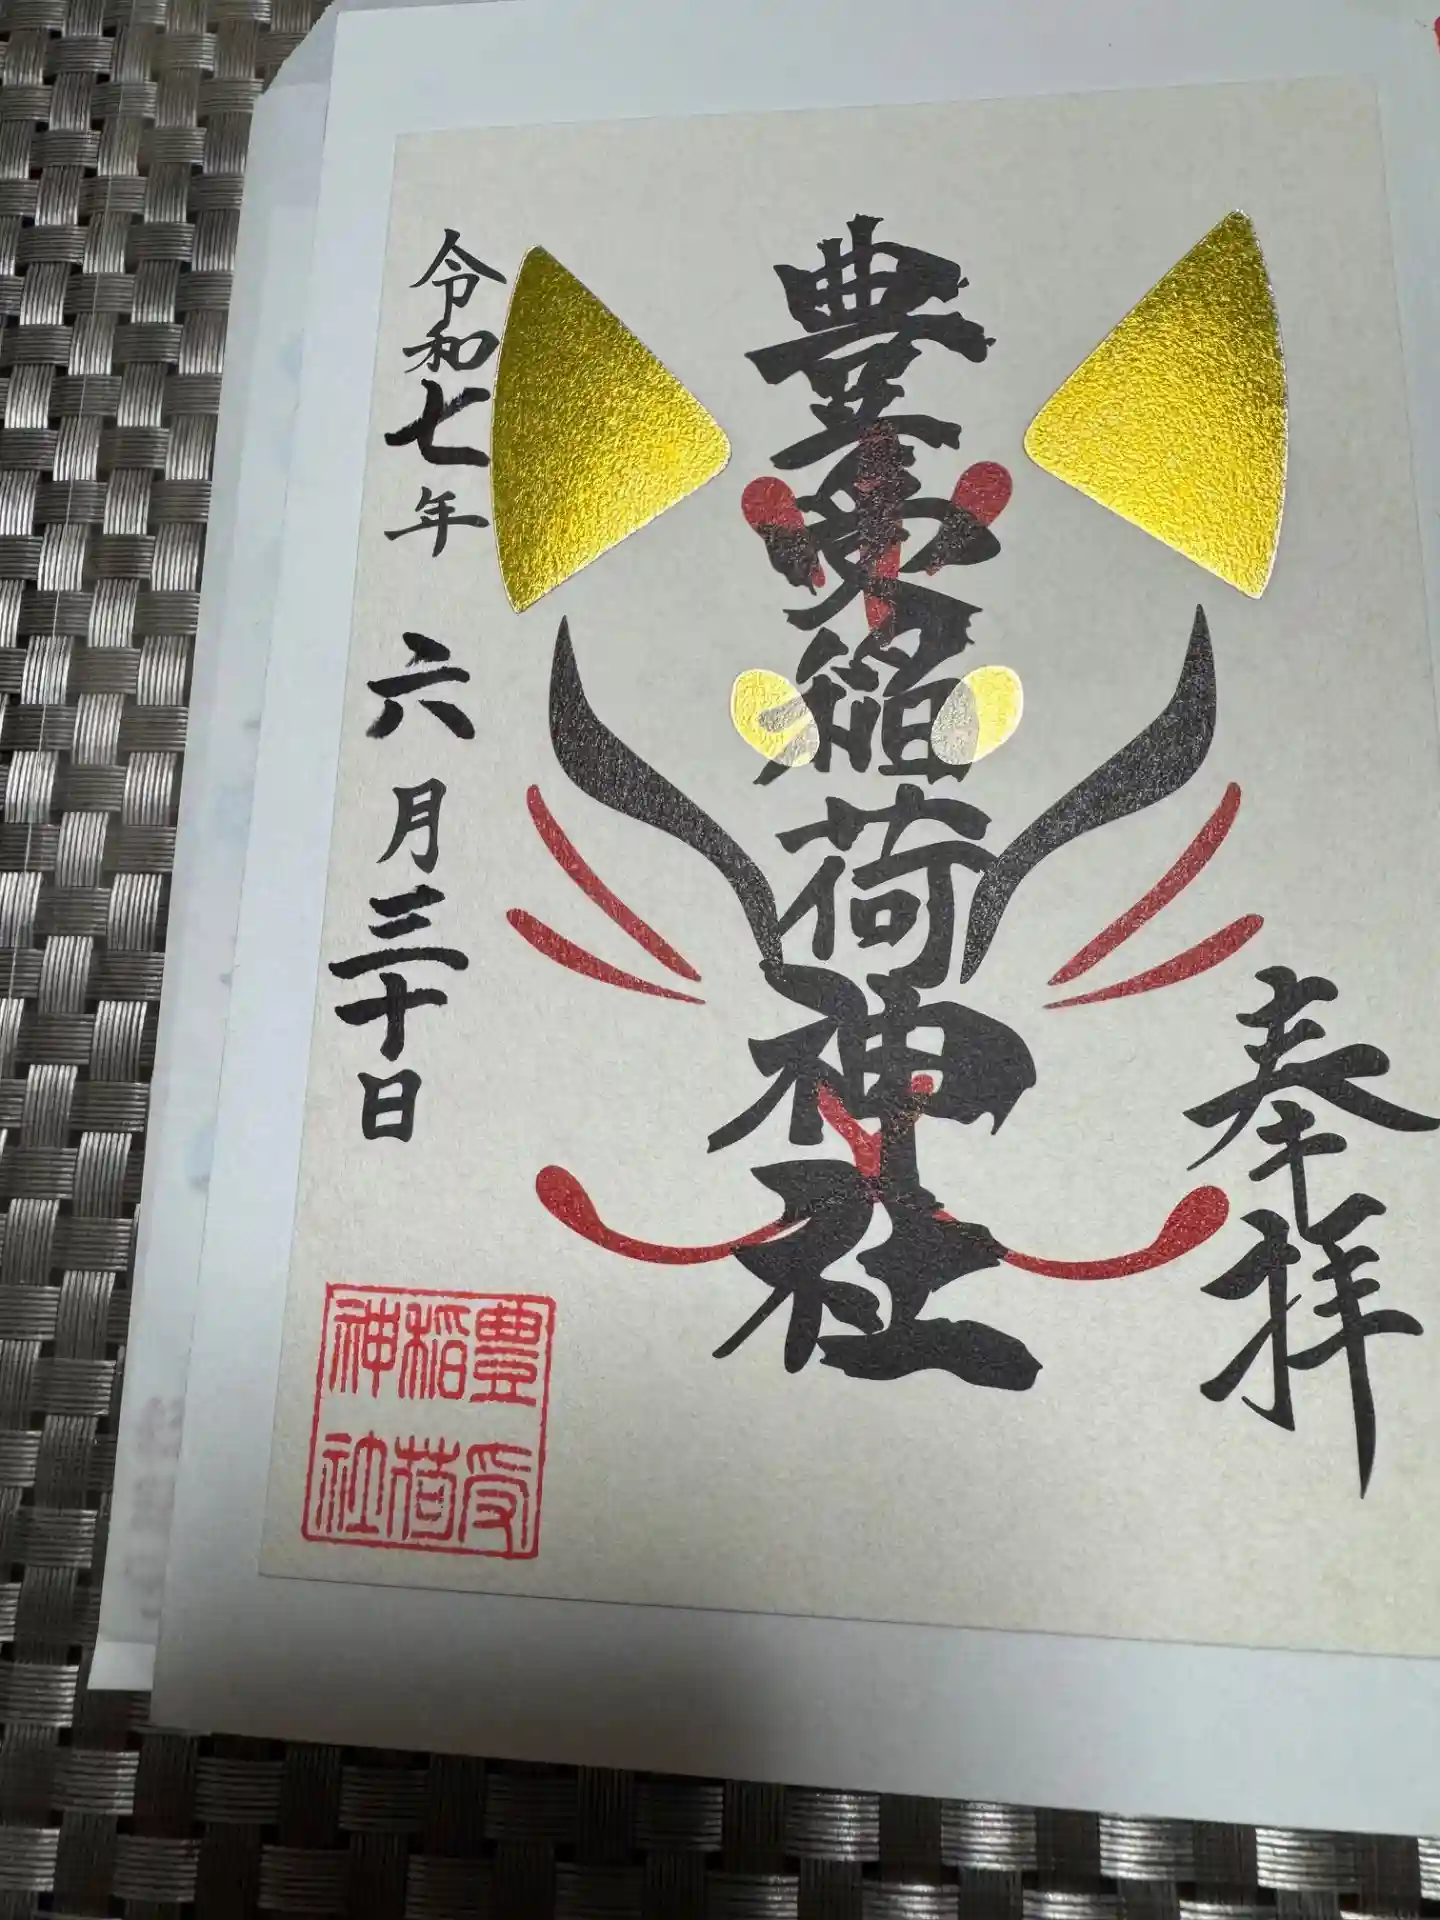 奉拝
豊受稲荷神社
令和七年六月三十日
豊受
稲荷
神社